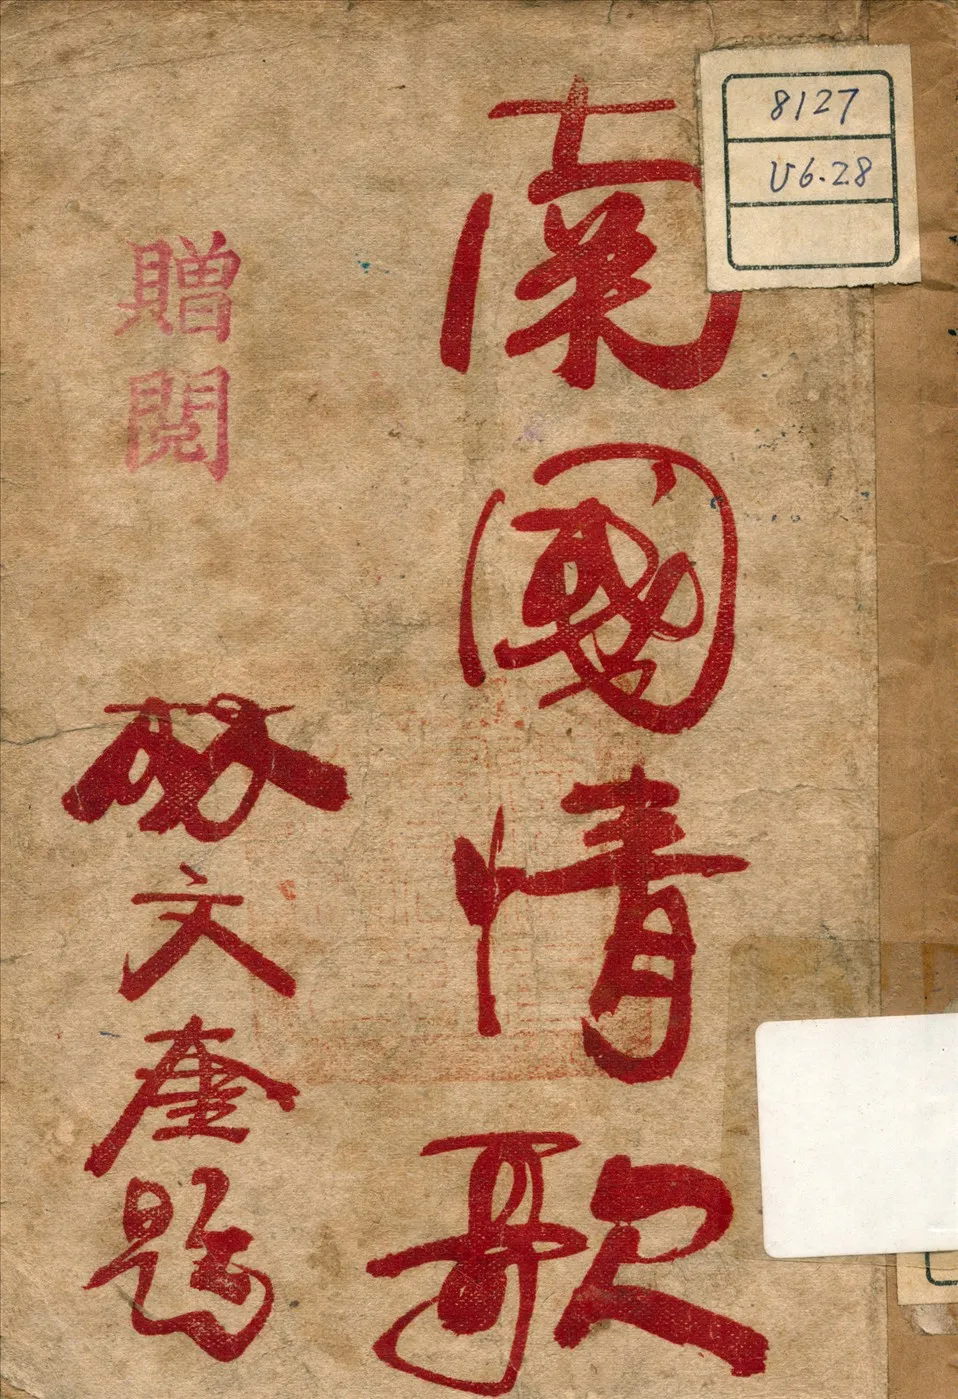 南國情歌
文奎題
贈閱
8127
U6.28